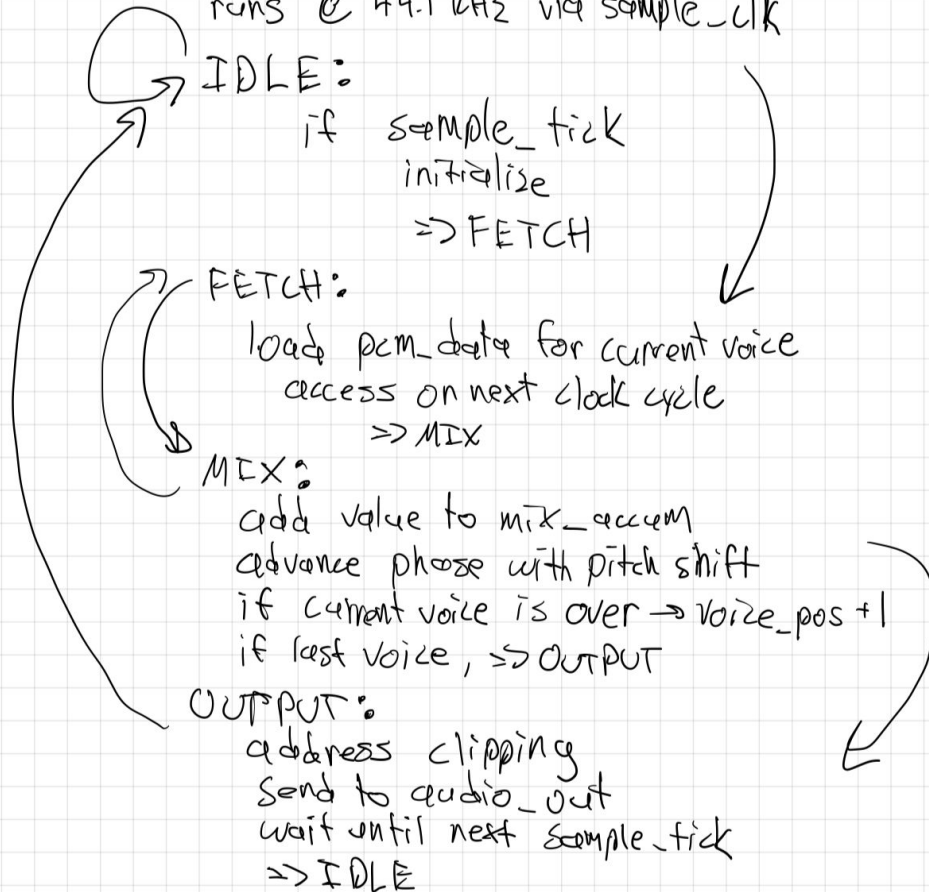 runs @ 44.1 kHz via sample_clk
IDLE:
if sample_tick
initialise
=> FETCH
FETCH:
load pcm_data for current voice
access on next clock cycle
=> MIX
MIX:
add value to mix_accum
advance phase with pitch shift
if current voice is over → voice_pos +1
if last voice, => OUTPUT
OUTPUT:
address clipping
send to audio_out
wait until next sample_tick
=> IDLE